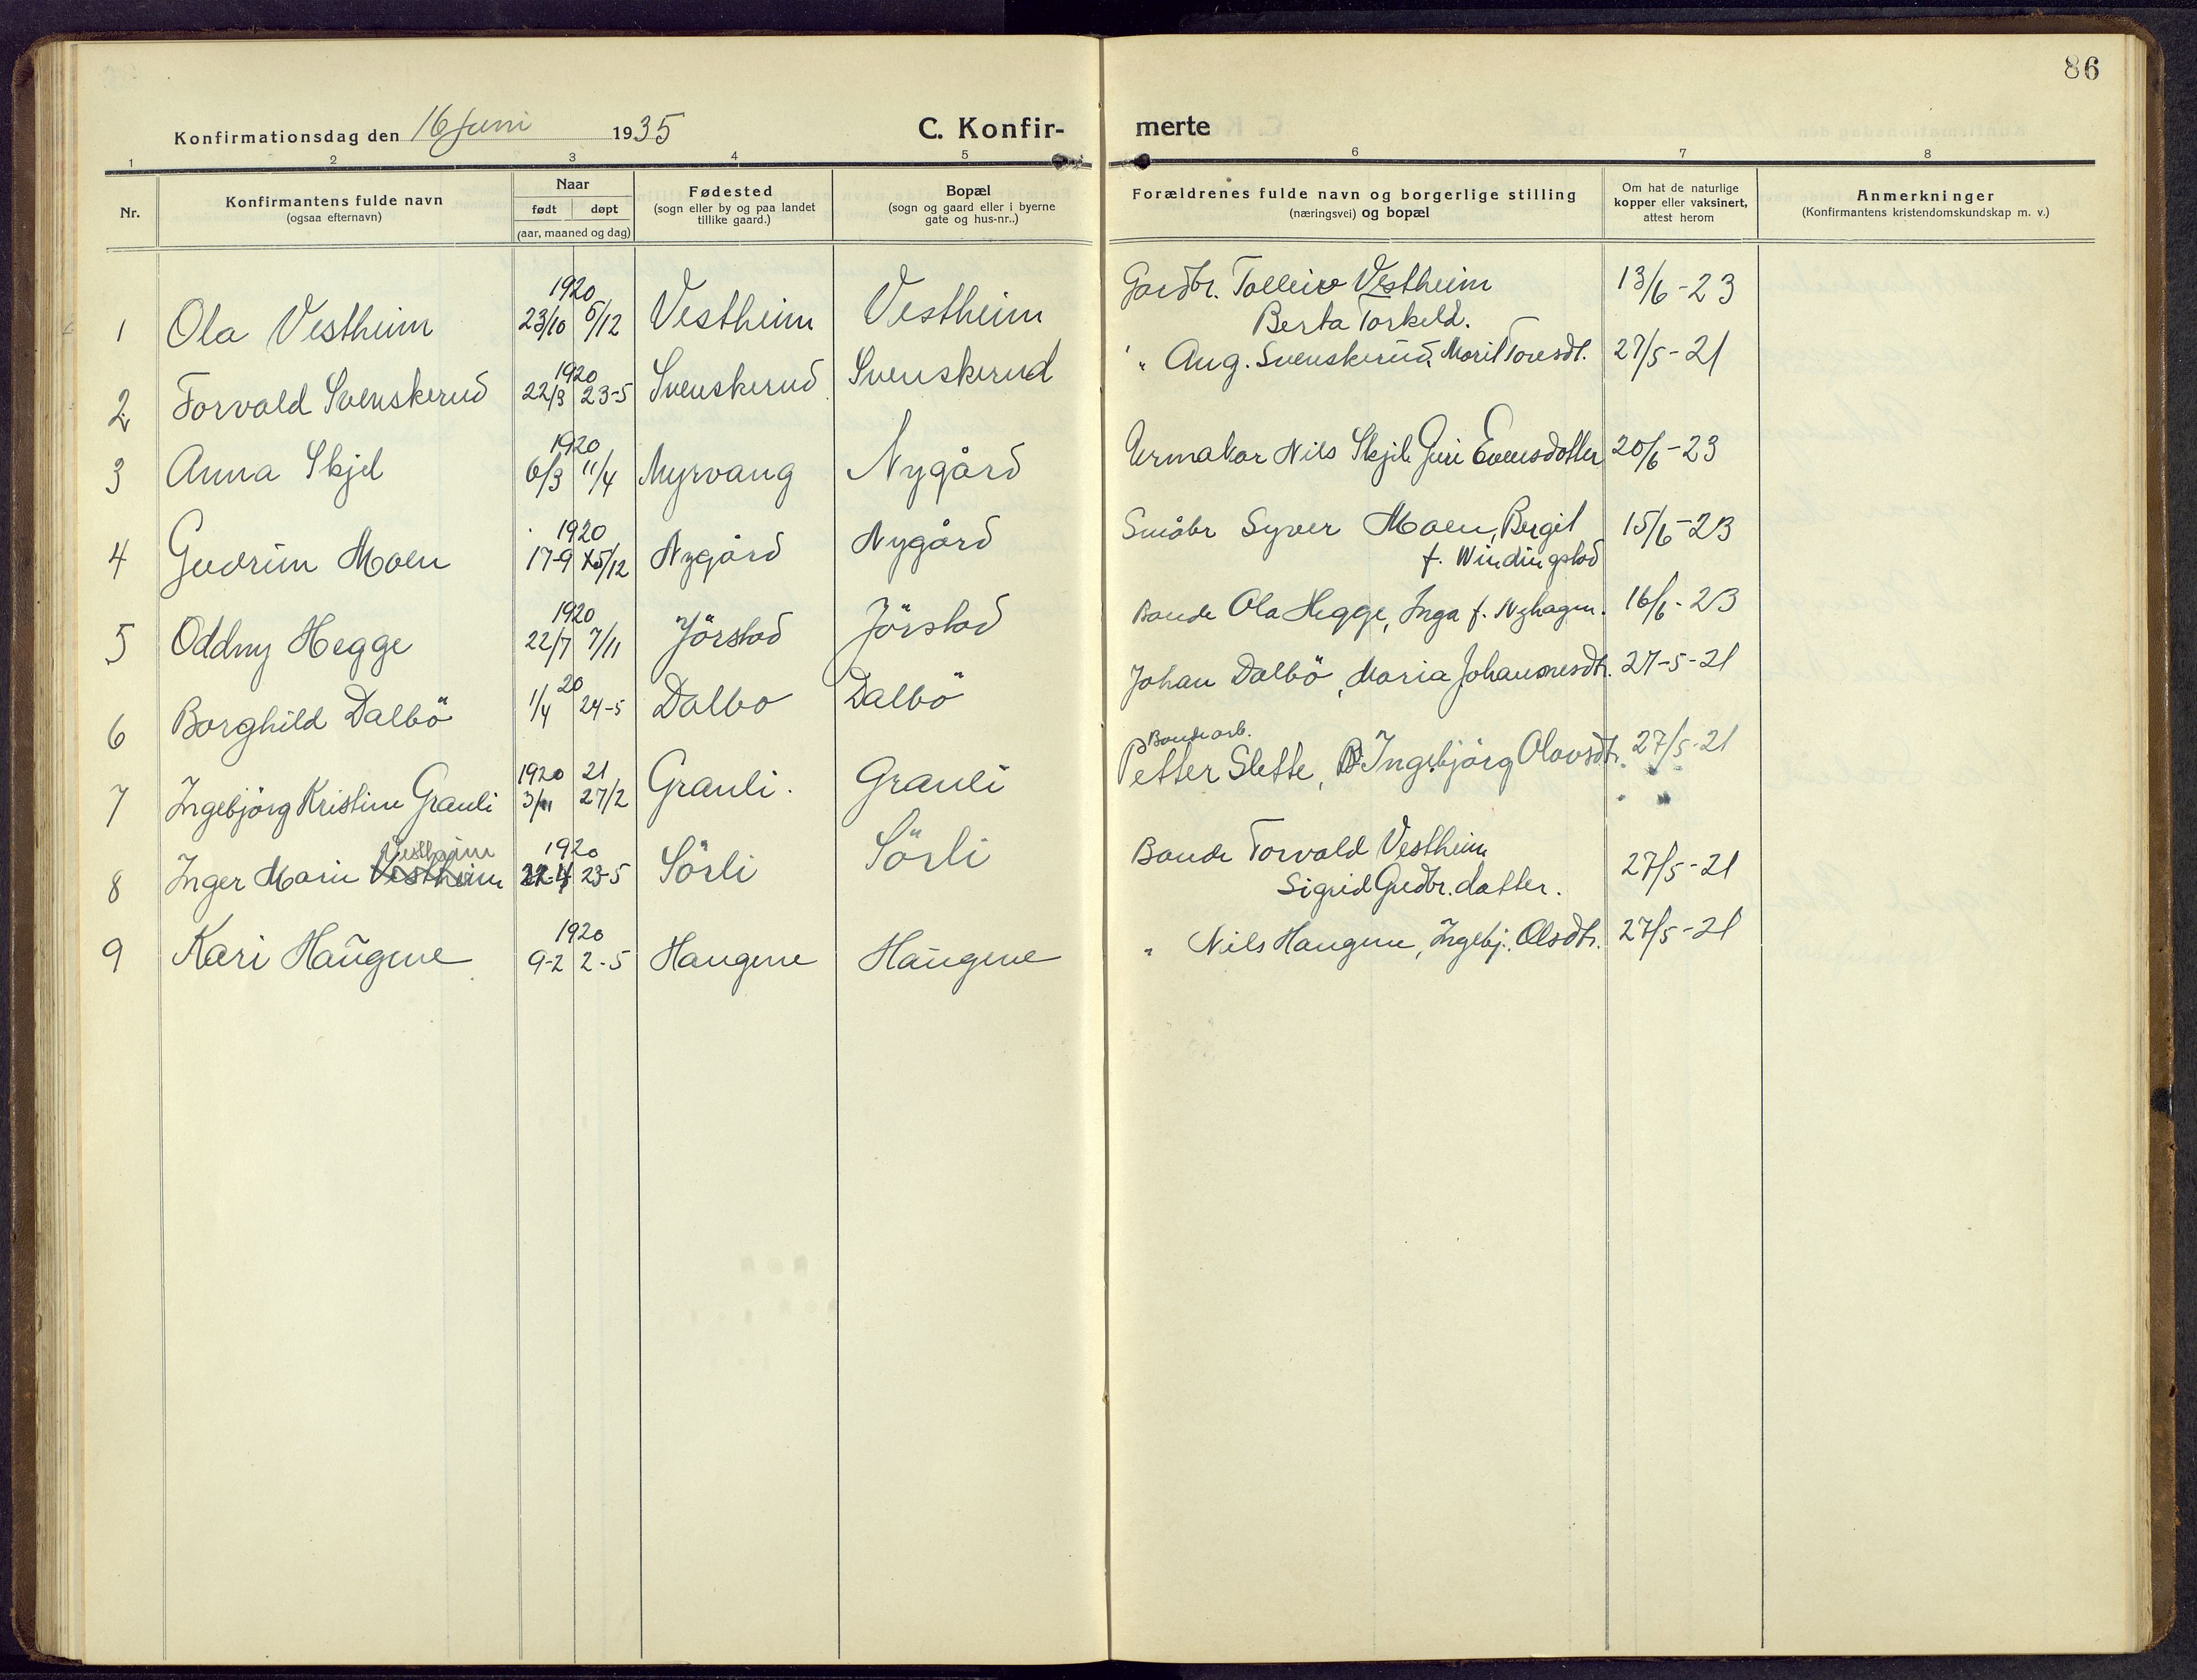 86
Konfirmationsdag den 16 Juni 1935 C. Konfir- merte
1 2 3 4 5 6 7 8
Nr. Konfirmantens fulde navn (ogsaa efternavn) Naar født døpt (aar, maaned og dag) Fødested (sogn eller by og paa landet tillike gaard.) Bopæl (sogn og gaard eller i byerne gate og hus-nr..) Forældrenes fulde navn og borgerlige stilling (næringsvei) og bopæl Om hat de naturlige kopper eller vaksinert, attest herom Anmerkninger (Konfirmantens kristendomskundskap m. v.)
1920
1 Ola Vestheim 23/10 5/12 Vestheim Vestheim Gardbr. Tolleiv Vestheim 13/6 - 23
Berta Torkeld.
1920
2 Torvald Svenskerud 22/3 23-5 Svenskerud Svenskerud " Aug. Svenskerud, Marit Toresdt. 27/5 - 21
1920
3 Anna Skjel 6/3 11/4 Myrvang Nygård Urmakar Nils Skjel, Guri Evensdotter 20/6 - 23
1920
4 Gudrun Moen 17-9 5/12 Nygård Nygård Småbr Syver Moen, Bergit 15/6 - 23
f. Windingstad
1920
5 Oddny Hegge 22/7 7/11 Jörstad Jörstad Bonde Ola Hegge, Inga f. Nyhagen. 16/6 - 23
20
6 Borghild Dalbö 1/4 24-5 Dalbo Dalbö Johan Dalbö, Maria Johannesdt. 27-5-21
Bondearb.
1920 21
7 Ingebjörg Kristine Grauli 3/11 27/2 Grauli. Grauli Petter Slette, Ingebjörg Olavsdt. 27/5-21
Vestheim 1920
8 Inger Marie Vestheim 22-4 23-5 Sörli Sörli Bonde Torvald Vestheim 27/5 - 21
Sigrid Gudbr. datter.
1920
9 Kari Haugene 9-2 2-5 Haugene Haugene " Nils Haugene, Ingebj. Olsdt. 27/5 - 21